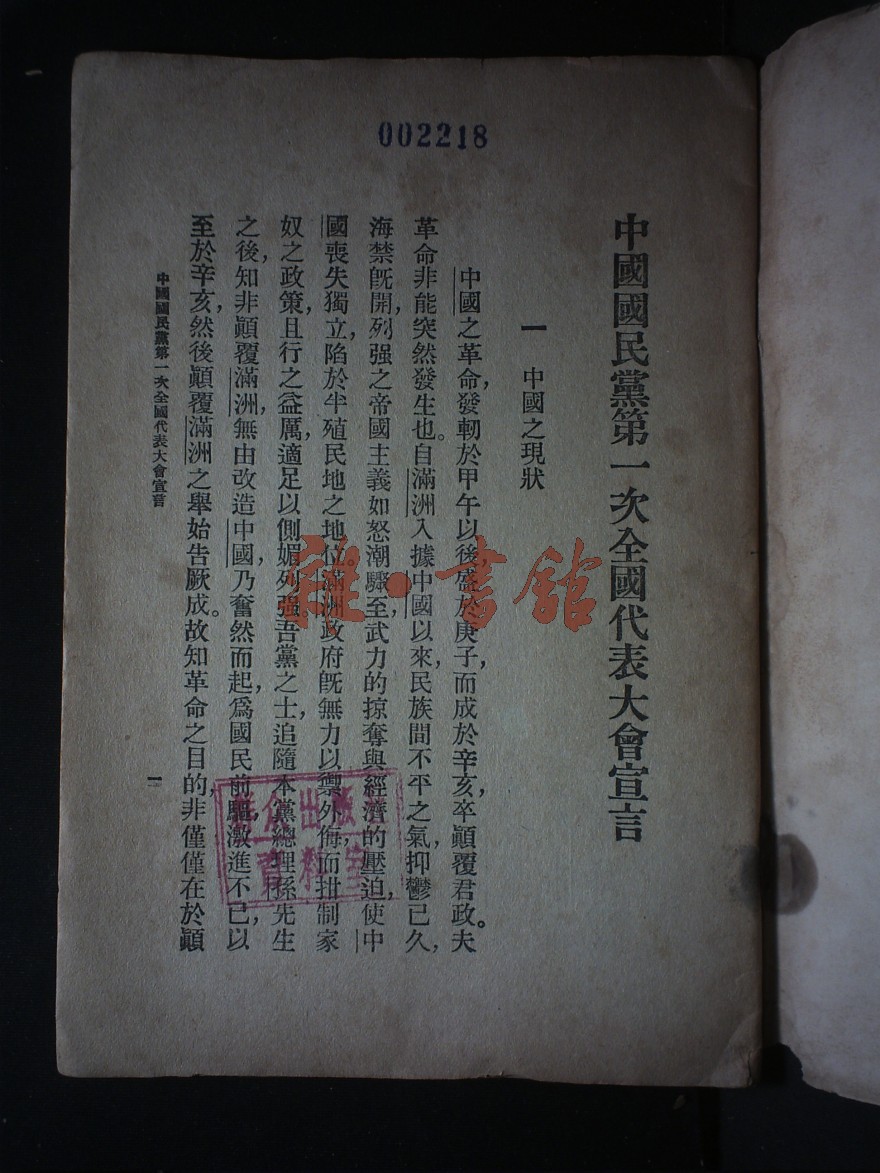 002218
中國國民黨第一次全國代表大會宣言
一　中國之現狀
中國之革命，發軔於甲午以後，盛於庚子，而成於辛亥，卒顚覆君政。夫
革命非能突然發生也。自滿洲入據中國以來，民族間不平之氣，抑鬱已久，
海禁旣開，列强之帝國主義如怒潮驟至，武力的掠奪與經濟的壓迫，使中
國喪失獨立，陷於半殖民地之地位。滿洲政府旣無力以禦外侮，而拑制家
奴之政策，且行之益厲，適足以側媚列强。吾黨之士，追隨本黨總理孫先生
之後，知非顚覆滿洲，無由改造中國，乃奮然而起，爲國民前驅，激進不已，以
至於辛亥，然後顚覆滿洲之舉始告厥成。故知革命之目的，非僅僅在於顚
中國國民黨第一次全國代表大會宣言
一
雅·書館